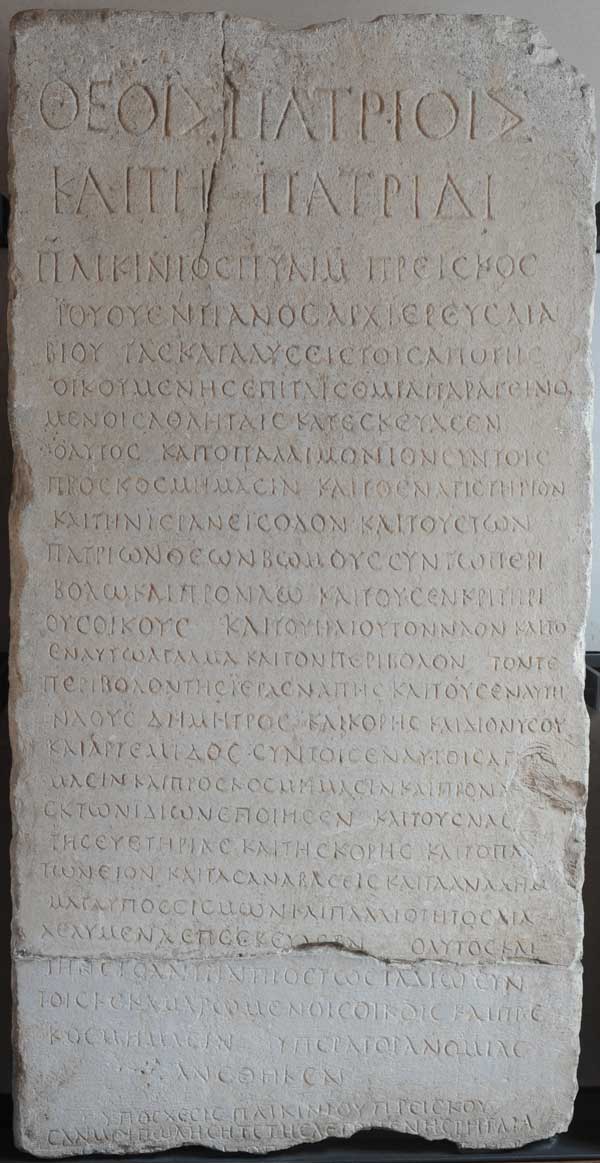 ΘΕΟΙΣ ΠΑΤΡΙΟΙΣ
ΚΑΙ ΤΗ ΠΑΤΡΙΔΙ
Π ΛΙΚΙΝΙΟϹ Π ΥΙ ΑΙΜ ΠΡΕΙϹΚΟϹ
ΙΟΥΟΥΕΝΤΙΑΝΟϹ ΑΡΧΙΕΡΕΥϹ ΔΙΑ
ΒΙΟΥ ΤΑϹ ΚΑΤΑΛΥϹΕΙϹ ΤΟΙϹ ΑΠΟ ΤΗϹ
ΟΙΚΟΥΜΕΝΗϹ ΕΠΙ ΤΑ ΙϹΘΜΙΑ ΠΑΡΑΓΕΙΝΟ
ΜΕΝΟΙϹ ΑΘΛΗΤΑΙϹ ΚΑΤΕϹΚΕΥΑϹΕΝ
Ο ΑΥΤΟϹ ΚΑΙ ΤΟ ΠΑΛΑΙΜΟΝΙΟΝ ϹΥΝ ΤΟΙϹ
ΠΡΟϹΚΟϹΜΗΜΑϹΙΝ ΚΑΙ ΤΟ ΕΝΑΓΙϹΤΗΡΙΟΝ
ΚΑΙ ΤΗΝ ΙΕΡΑΝ ΕΙϹΟΔΟΝ ΚΑΙ ΤΟΥϹ ΤΩΝ
ΠΑΤΡΙΩΝ ΘΕΩΝ ΒΩΜΟΥϹ ϹΥΝ ΤΩ ΠΕΡΙ
ΒΟΛΩ ΚΑΙ ΠΡΟΝΑΩ ΚΑΙ ΤΟΥϹ ΕΝΚΡΙΤΗΡΙ
ΟΥϹ ΟΙΚΟΥϹ ΚΑΙ ΤΟΥ ΗΛΙΟΥ ΤΟΝ ΝΑΟΝ ΚΑΙ ΤΟ
ΕΝ ΑΥΤΩ ΑΓΑΛΜΑ ΚΑΙ ΤΟΝ ΠΕΡΙΒΟΛΟΝ ΤΟΝ ΤΕ
ΠΕΡΙΒΟΛΟΝ ΤΗϹ ΙΕΡΑϹ ΝΑΠΗϹ ΚΑΙ ΤΟΥϹ ΕΝ ΑΥΤΗ
ΝΑΟΥϹ ΔΗΜΗΤΡΟϹ ΚΑΙ ΚΟΡΗϹ ΚΑΙ ΔΙΟΝΥϹΟΥ
ΚΑΙ ΑΡΤΕΜΙΔΟϹ ϹΥΝ ΤΟΙϹ ΕΝ ΑΥΤΟΙϹ ΑΓΑ
ΜΑϹΙΝ ΚΑΙ ΠΡΟϹΚΟϹΜΗΜΑϹΙΝ ΚΑΙ ΠΡΟΝΑ
ΕΚ ΤΩΝ ΙΔΙΩΝ ΕΠΟΙΗϹΕΝ ΚΑΙ ΤΟΥϹ ΝΑ
ΤΗϹ ΕΥΕΤΗΡΙΑϹ ΚΑΙ ΤΗϹ ΚΟΡΗϹ ΚΑΙ ΤΟ ΠΛ
ΤΩΝΕΙΟΝ ΚΑΙ ΤΑϹ ΑΝΑΒΑϹΕΙϹ ΚΑΙ ΤΑ ΑΝΑΛΗΜ
ΜΑΤΑ ΥΠΟ ϹΕΙϹΜΩΝ ΚΑΙ ΠΑΛΑΙΟΤΗΤΟϹ ΔΙΑ
ΛΕΛΥΜΕΝΑ ΕΠΕϹΚΕΥΑϹΕΝ Ο ΑΥΤΟϹ ΚΑΙ
ΤΗΝ ϹΤΟΑΝ ΤΗΝ ΠΡΟϹ ΤΩ ϹΤΑΔΙΩ ϹΥΝ
ΤΟΙϹ ΚΕΚΑΜΑΡΩΜΕΝΟΙϹ ΟΙΚΟΙϹ ΚΑΙ ΠΡΟϹ
ΚΟϹΜΗΜΑϹΙΝ ΥΠΕΡ ΑΓΟΡΑΝΟΜΙΑϹ
ΑΝΕΘΗΚΕΝ
ΛΙΚΙΝΙΟΥ ΠΡΕΙϹΚΟΥ